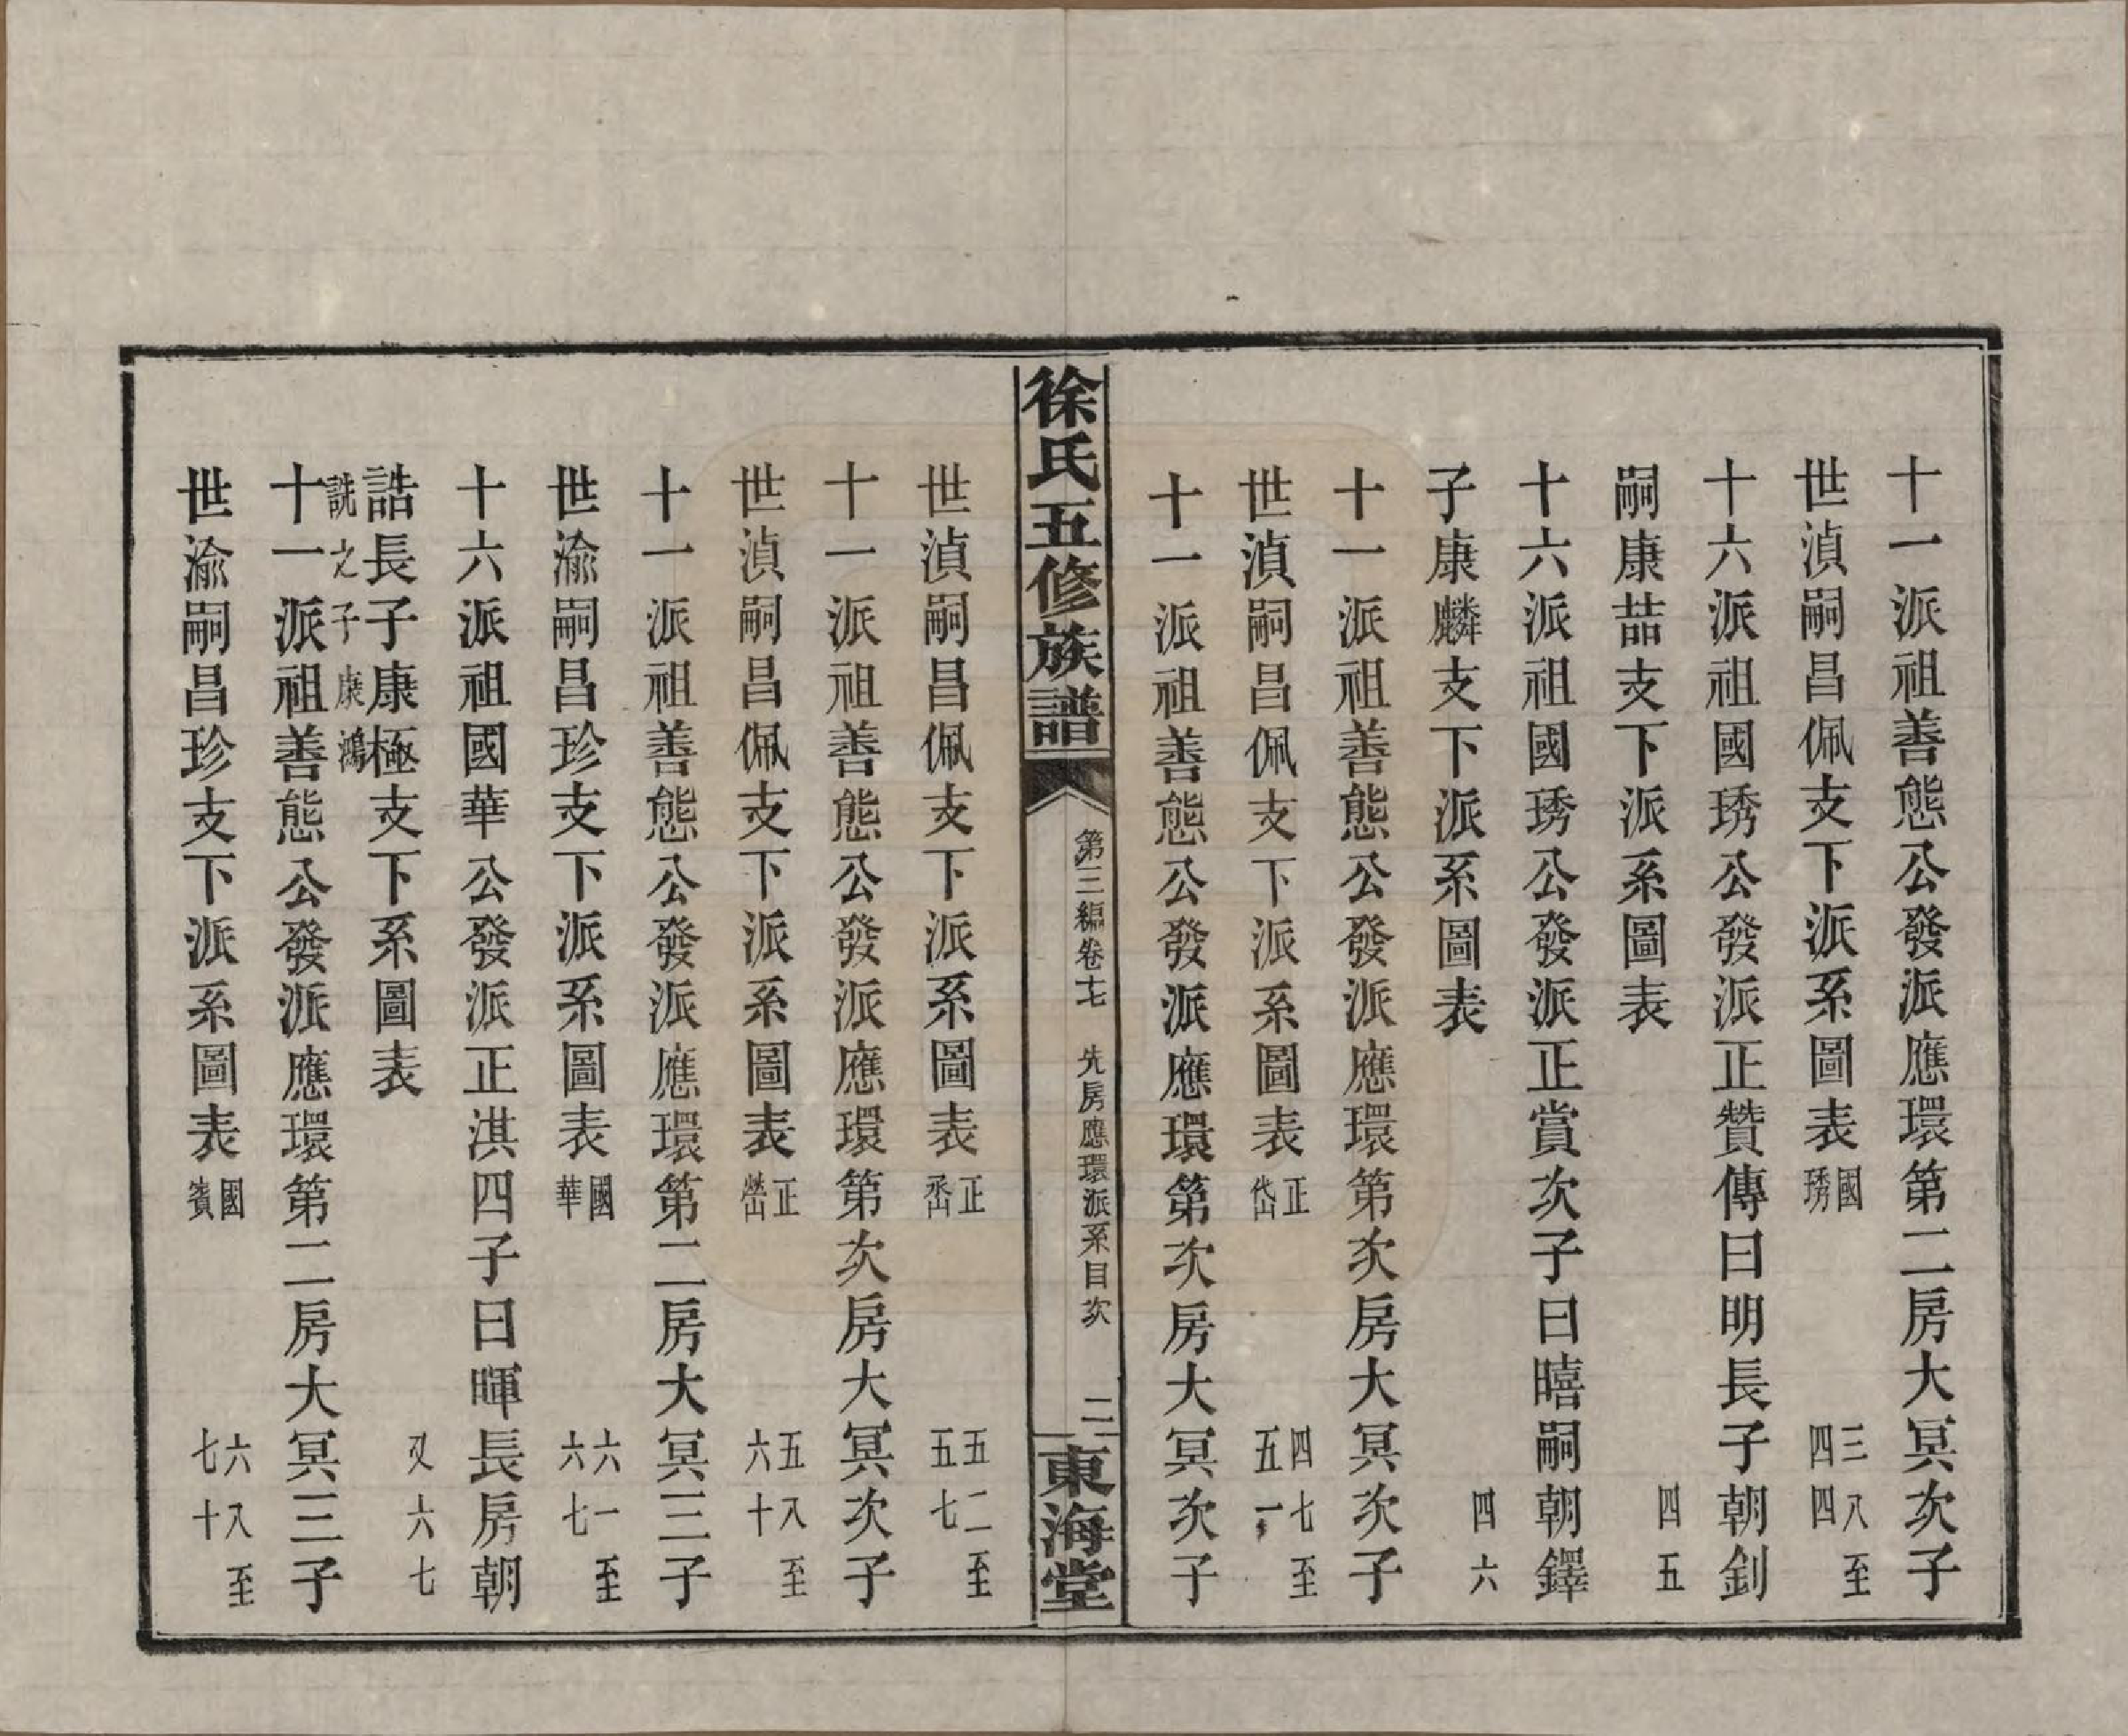 十一派祖善態公發派應環第二房大冥次子
世湞嗣昌佩支下派系圖表國琇 三八至四四
十六派祖國琇公發派正贊傳曰明長子朝釗
嗣康喆支下派系圖表 四五
十六派祖國琇公發派正賞次子曰暿嗣朝鐸
子康麟支下派系圖表 四六
十一派祖善態公發派應環第次房大冥次子
世湞嗣昌佩支下派系圖表正岱 四七至五一
十一派祖善態公發派應環第次房大冥次子
徐氏五修族譜
第三編卷十七 先房應環派系目次 二
東海堂
世湞嗣昌佩支下派系圖表正岙 五二至五七
十一派祖善態公發派應環第次房大冥次子
世湞嗣昌佩支下派系圖表正 五八至六十
十一派祖善態公發派應環第二房大冥三子
世渝嗣昌珍支下派系圖表國華 六一至六七
十六派祖國華公發派正淇四子曰暉長房朝
誥長子康極支下系圖表 又六七
詵之子康鴻
十一派祖善態公發派應環第二房大冥三子
世渝嗣昌珍支下派系圖表國賓 六八至七十